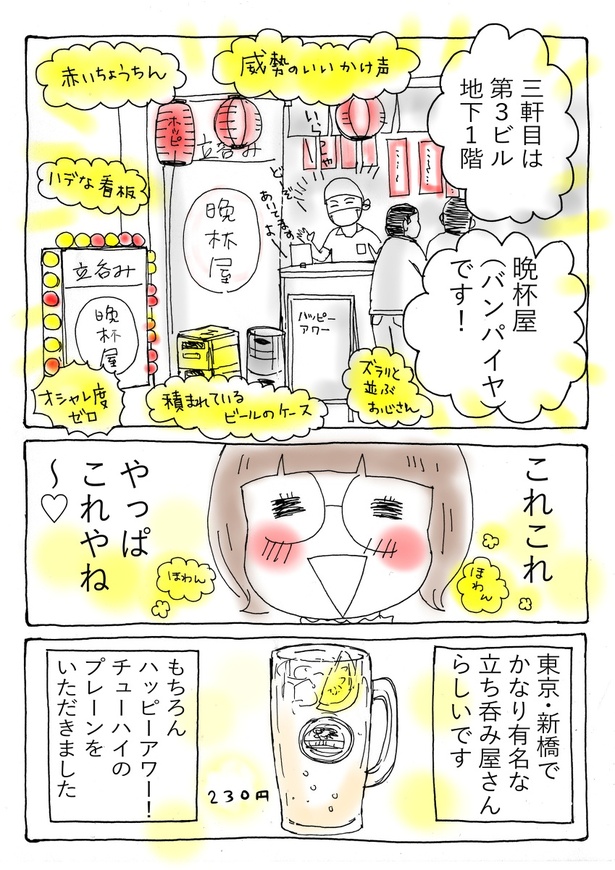 三軒目は
第3ビル
地下1階
晩杯屋
(バンパイヤ)
です!
威勢のいいかけ声
赤いちょうちん
ハデな看板
ホッピー
立呑み
晩
杯
屋
いらっしゃい
どーぞー
あいてますよー
立呑み
晩
杯
屋
ハッピー
アワー
オシャレ度
ゼロ
積まれている
ビールのケース
ズラリと
並ぶ
おじさん
これこれ
やっぱ
これやね
〜♡
ほわん
ほわん
東京・新橋で
かなり有名な
立ち呑み屋さん
らしいです
もちろん
ハッピーアワー!
チューハイの
プレーンを
いただきました
230円